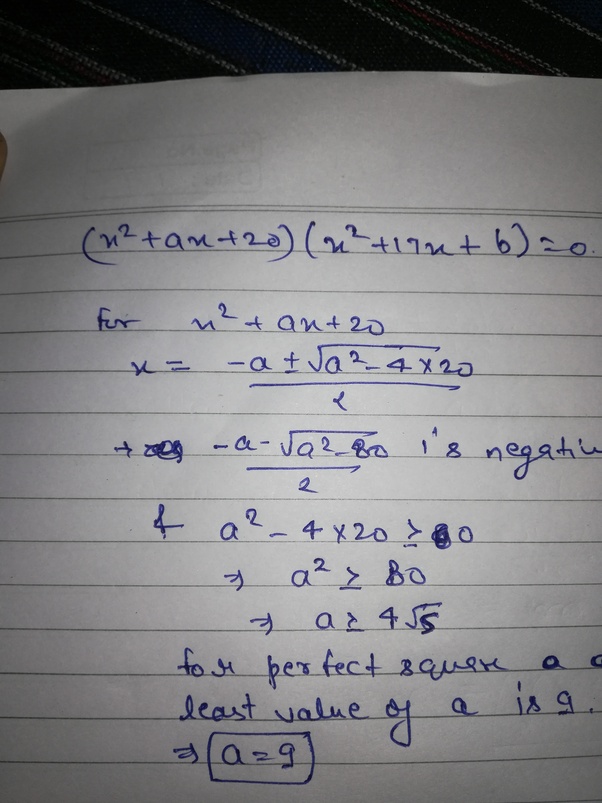 (x²+ax+20)(x²+17x+b)=0.
For x²+ax+20
x = -a ± √a²-4×20 / 2
-a-√a²-80 / 2 is negativ
& a² - 4×20 ≥ 0
⇒ a² ≥ 80
⇒ a ≥ 4√5
for perfect square a
least value of a is 9.
⇒ a=9